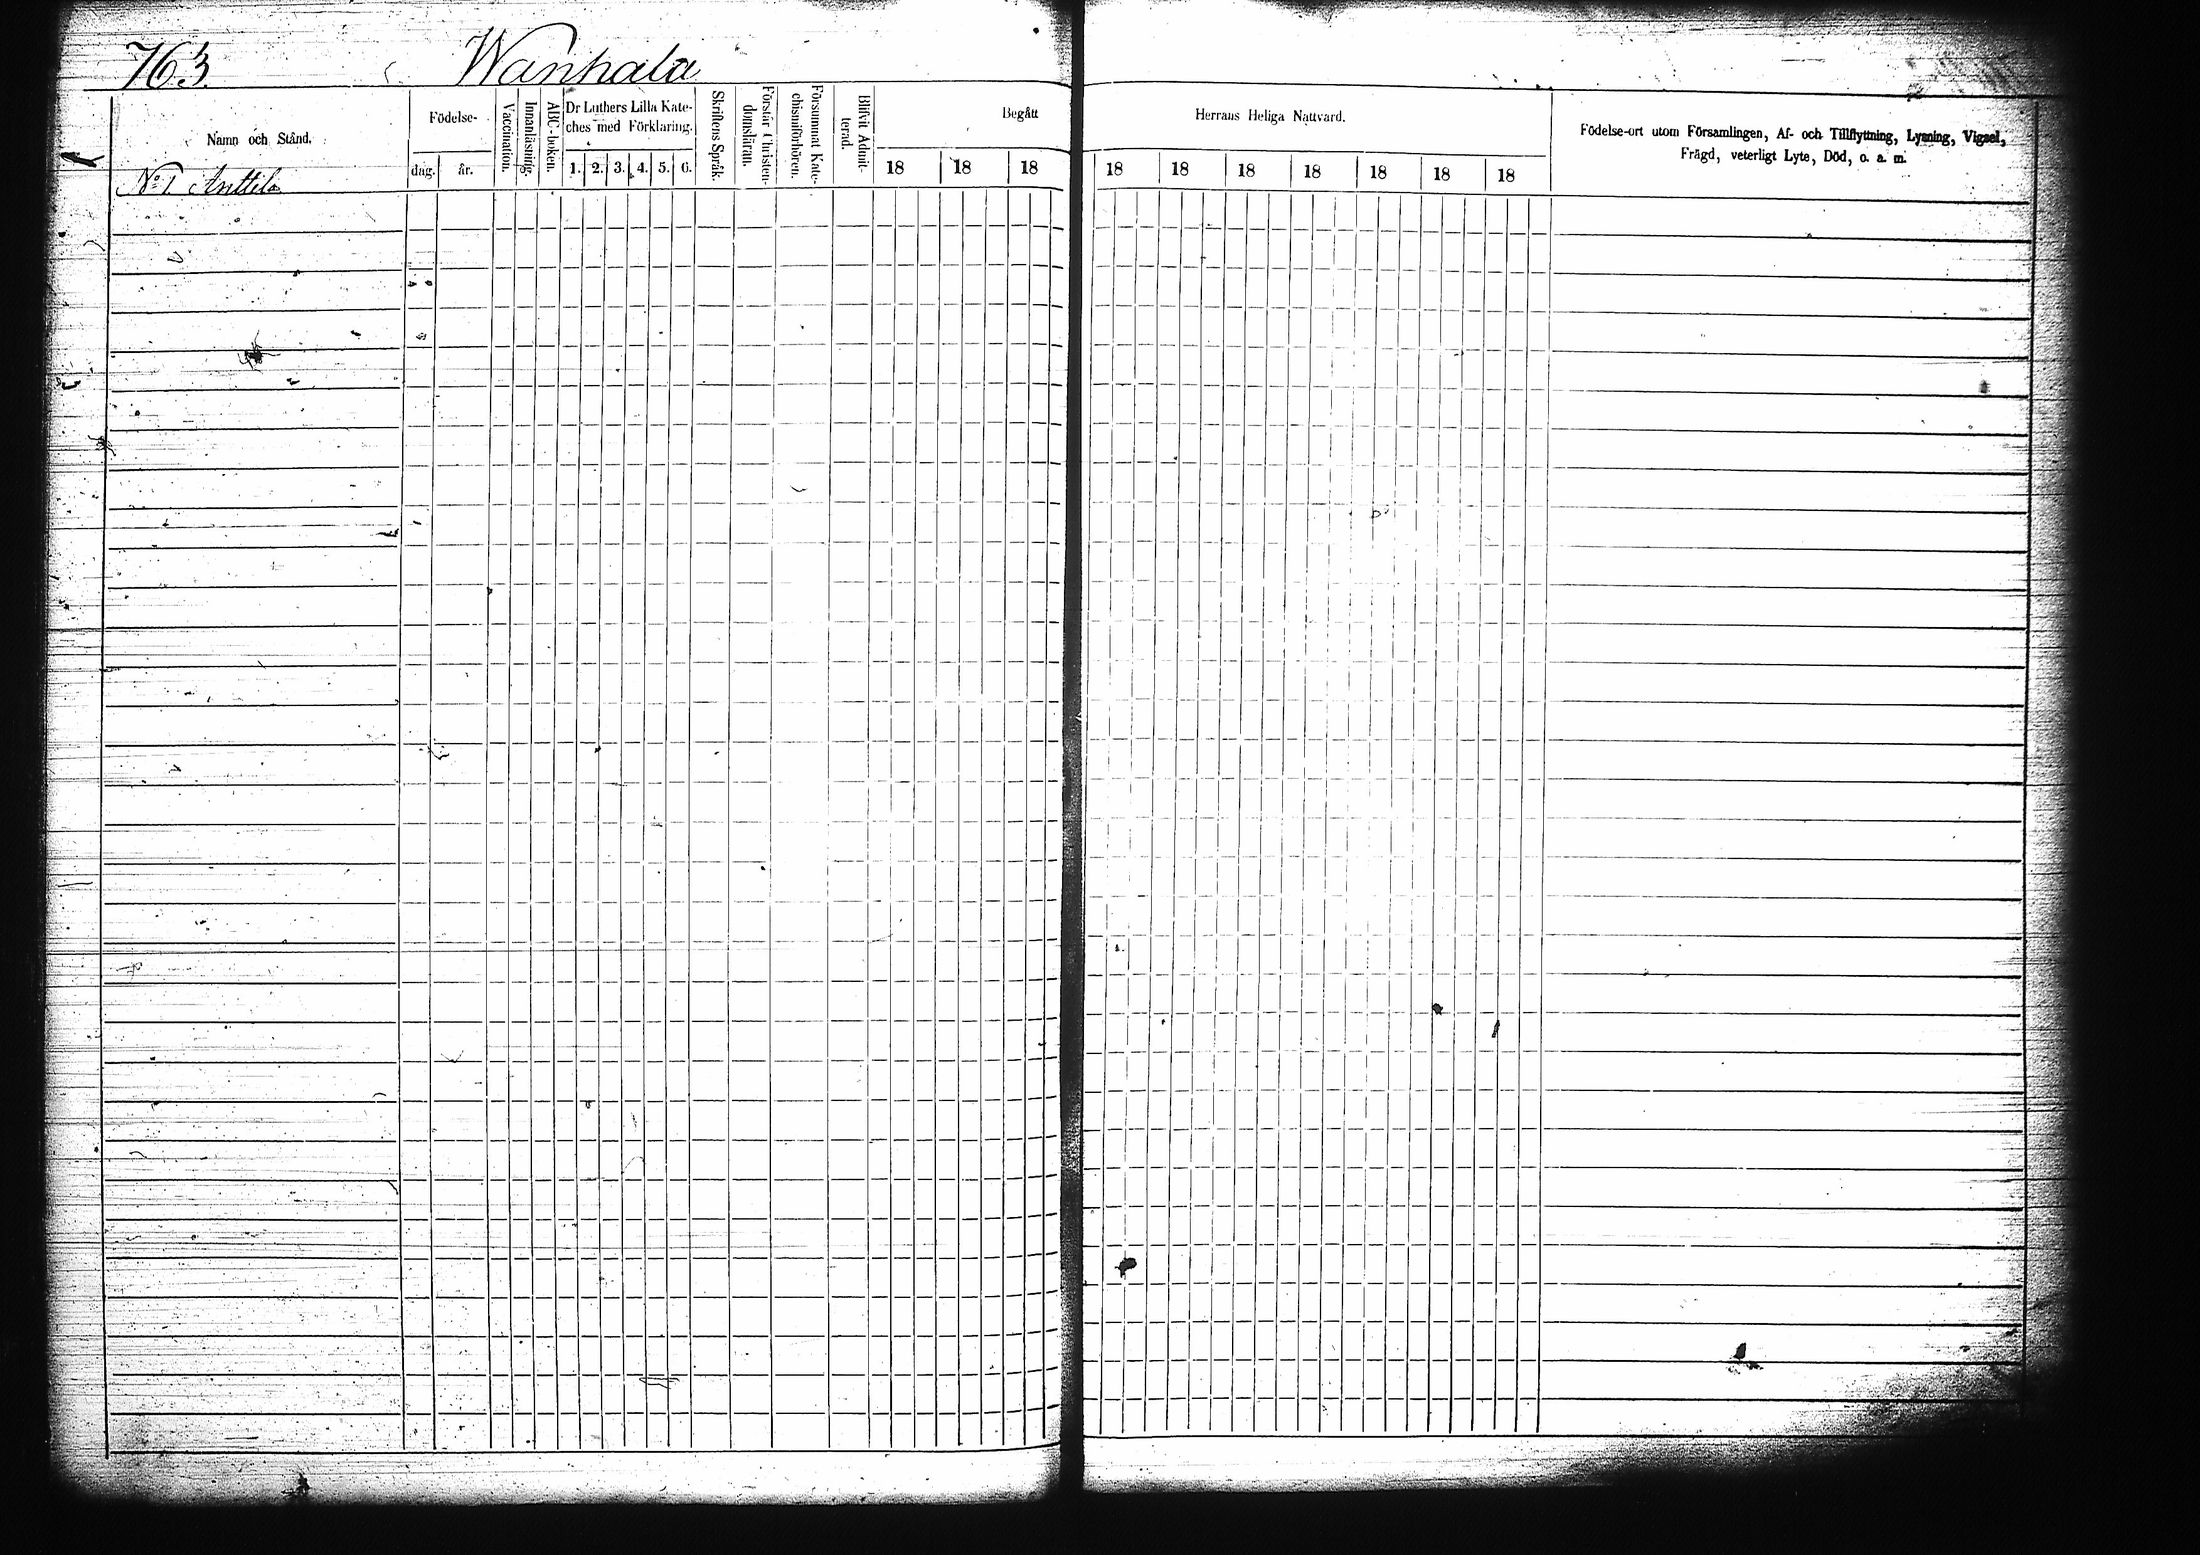 763.
Wanhala
Namn och Stånd.
Födelse-
dag.
år.
Vaccination.
Innanläsning.
ABC-boken.
Dr Luthers Lilla Kate-
ches med Förklaring.
1. 2. 3. 4. 5. 6.
Skriftens Språk.
Förstår Christen-
domsläran.
Försummat Kate-
chismiförhören.
Blifvit Admit-
terad.
Begått
18 18 18
Herrans Heliga Nattvard.
18 18 18 18 18 18 18
Födelse-ort utom Församlingen, Af- och Tillflyttning, Lysning, Vigsel,
Frägd, veterligt Lyte, Död, o. a. m.
No 1 Anttila